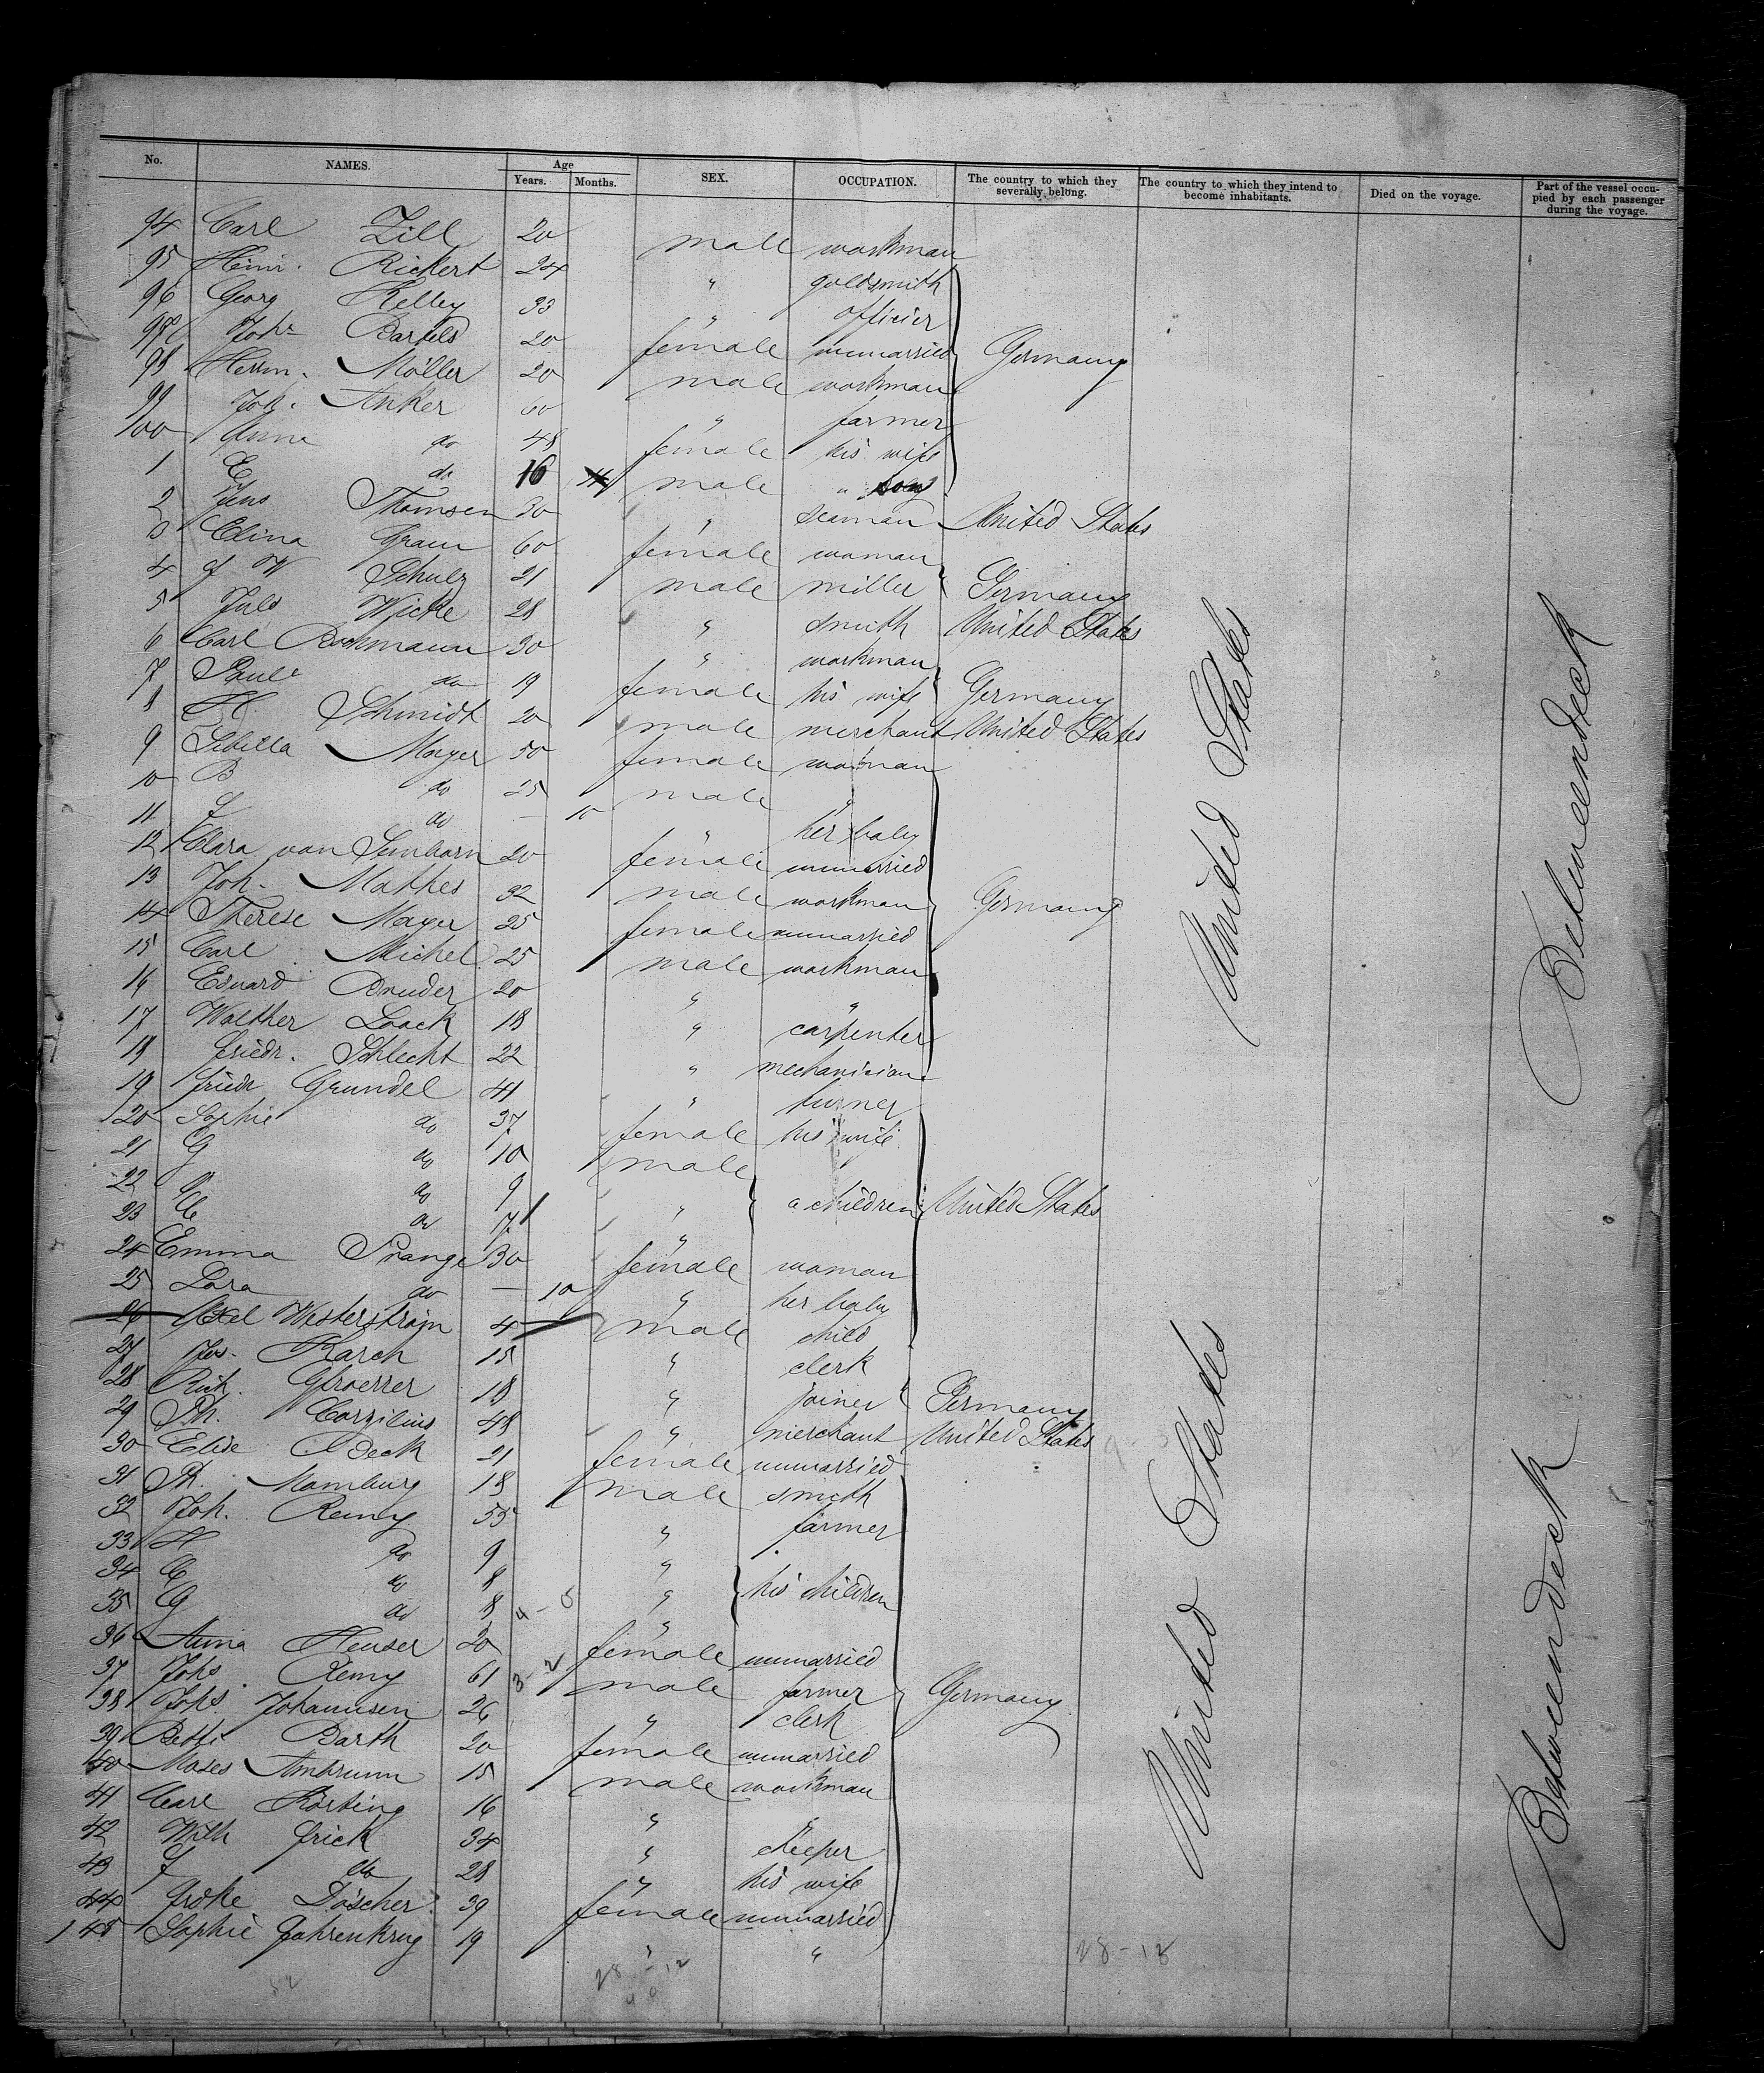 No. NAMES. Age Years. Months. SEX. OCCUPATION. The country to which they severally belong. The country to which they intend to become inhabitants. Died on the voyage. Part of the vessel occupied by each passenger during the voyage.
94 Carl Zill 20 male workman
95 Heinr. Rickert 24 " goldsmith
96 Georg Kelley 33 " officier
97 Joh. Bartels 20 female unmarried Germany
98 Herm. Möller 20 male workman
99 Joh. Anker 60 " farmer
100 Anna do 48 female his wife
1 E do 16 male " son
2 Jens Thomsen 30 " seaman United States
3 Elina Graun 60 female woman
4 W Schulz 21 male miller Germany
5 Juls Wicke 28 " smith United States
6 Carl Bochmann 30 " workman
7 Paule do 19 female his wife Germany
8 H Schmidt 20 male merchant United States
9 Sibilla Mayer 50 female woman
10 B do 25 male "
11 do — 10 " her baby
12 Clara von 20 female unmarried
13 Joh. Mathes 32 male workman Germany
14 Therese Mayer 25 female unmarried
15 Carl Michel 25 male workman
16 Eduard Bruder 20 " "
17 Walther Loack 18 " carpenter
18 Friedr. Schlecht 22 " mechanician
19 Friedr Grundel 41 " turner
20 Sophie do 37 female his wife
21 G do 10 male
22 do 9 " children United States
23 do 17 "
24 Emma Prange 30 female woman
25 Dora do — 10 " her baby
26 Axel Westerstrøm 4 male child
27 Jos. Karch 15 " clerk
28 Rich. Gfroerrer 18 " joiner Germany
29 Ph. Corzilius 48 " merchant United States
30 Elise Beck 21 female unmarried
31 Ph. Mamburg 18 male smith
32 Joh. Remy 55 " farmer
33 H do 9 "
34 C do 8 " his children
35 G do 8 "
36 Anna Heuser 20 female unmarried
37 Johs. Remy 61 male farmer Germany
38 Johs. Johannsen 26 " clerk
39 Betti Barth 20 female unmarried
40 Moses Ambrunn 15 male workman
41 Carl Körting 16 " "
42 Wilh Frick 34 "
43 do 28 " his wife
44 Döscher 39 female unmarried
145 Sophie Fahrenkrug 19 " "
United States
United States
Betweendeck
Betweendeck
28-12
28-12